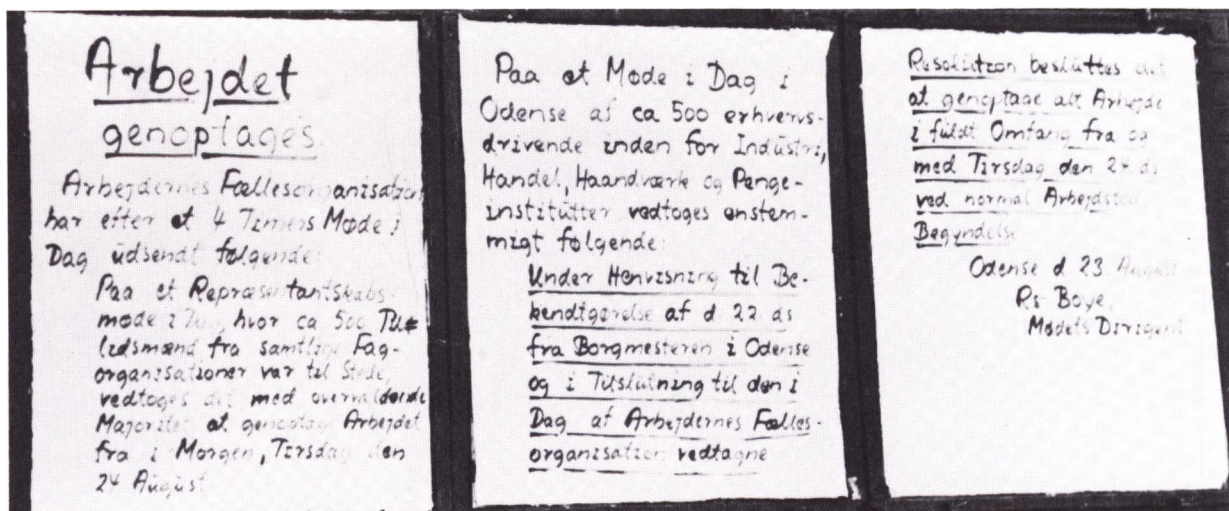 Arbejdet
genoptages.
Arbejdernes Fællesorganisation
har efter et 4 Timers Møde i
Dag udsendt følgende:
Paa et Repræsentantskabs-
møde i Dag, hvor ca 500 Til
lidsmænd fra samtlige Fag-
organisationer var til Stede,
vedtoges det med overvældende
Majoritet at genoptage Arbejdet
fra i Morgen, Tirsdag den
24 August
Paa et Møde i Dag i
Odense af ca 500 erhvervs-
drivende inden for Industri,
Handel, Haandværk og Penge-
institutter vedtoges enstem-
migt følgende:
Under Henvisning til Be-
kendtgørelse af d. 22 ds
fra Borgmesteren i Odense
og i Tilslutning til den i
Dag af Arbejdernes Fælles-
organisation vedtagne
Resolution besluttes det
at genoptage alt Arbejde
i fuldt Omfang fra og
med Tirsdag den 24 ds
ved normal Arbejdstids
Begyndelse
Odense d 23 August
Boye,
Mødets Dirigent